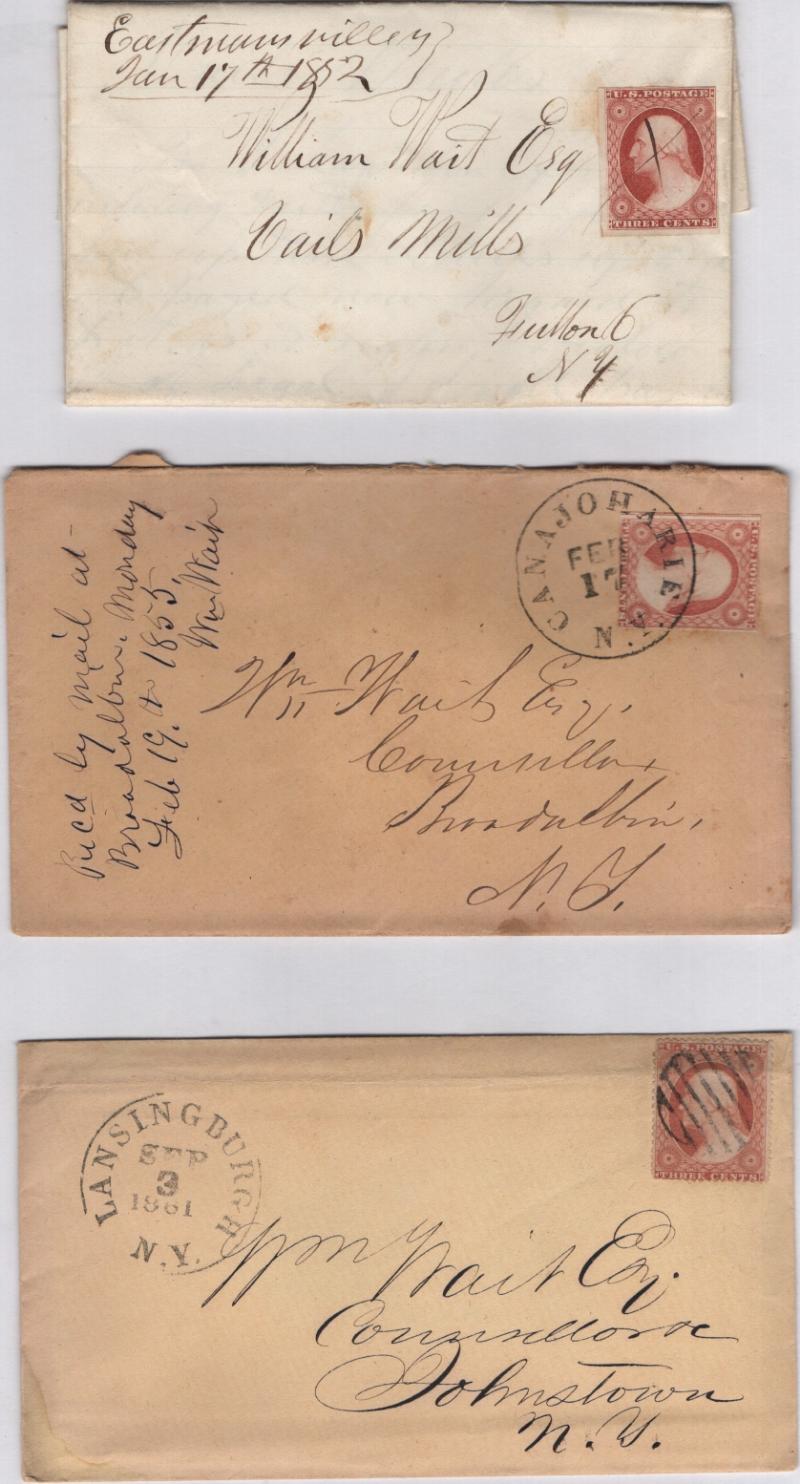 Eastmansville
Jan 17th 1852
U.S. POSTAGE
THREE CENTS
William Wait Esq
Vails Mills
Fulton C
N Y
CANAJOHARIE
N.Y.
FEB
17
Rec'd by mail at
Broadalbin, Monday
Feb 19. 1855,
Wm Wait
Wm Wait Esq,
Counsellor
Broadalbin,
N. Y.
U.S. POSTAGE
THREE CENTS
LANSINGBURGH
SEP
3
1861
N.Y.
Wm Wait Esq.
Counsellor &c
Johnstown
N. Y.